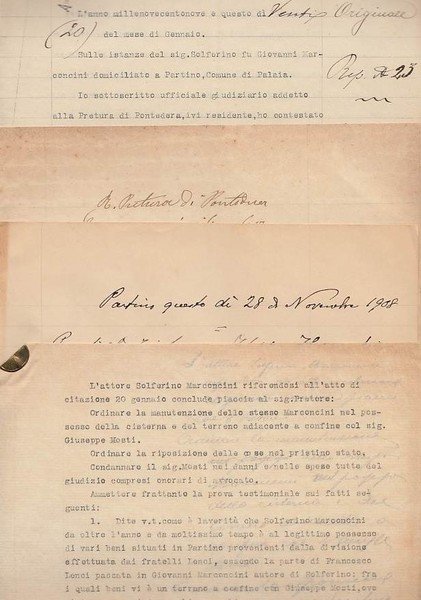 L'anno millenovecentonove e questo dì Venti Originale
(20) del mese di Gennaio.
Sulle istanze del sig.Solferino fu Giovanni Mar-
concini domiciliato a Partino,Comune di Palaia.
Rep. A 23
Io sottoscritto ufficiale giudiziario addetto
alla Pretura di Pontedera,ivi residente,ho contestato
R. Pretura di
Partino questo dì 28 di Novembre 1908
L'attore Solferino Marconcini riferendosi all'atto di
citazione 20 gennaio conclude piaccia al sig.Pretore:
Ordinare la manutenzione dello stesso Marconcini nel pos-
sesso della cisterna e del terreno adiacente a confine col sig.
Giuseppe Mosti.
Ordinare la riposizione delle cose nel pristino stato.
Condannare il sig.Mosti nei danni e nelle spese tutte del
giudizio compresi onorari di avvocato.
Ammettere frattanto la prova testimoniale sui fatti se-
guenti:
1. Dite v.t.come è laverità che Solferino Marconcini
da oltre l'anno e da moltissimo tempo è al legittimo possesso
di vari beni situati in Partino provenienti dalla divisione
effettuata dai fratelli Lenci, essendo la parte di Francesco
Lenci passata in Giovanni Marconcini autore di Solferino: fra
i quali beni vi è un terreno a confine con Giuseppe Mosti,ove